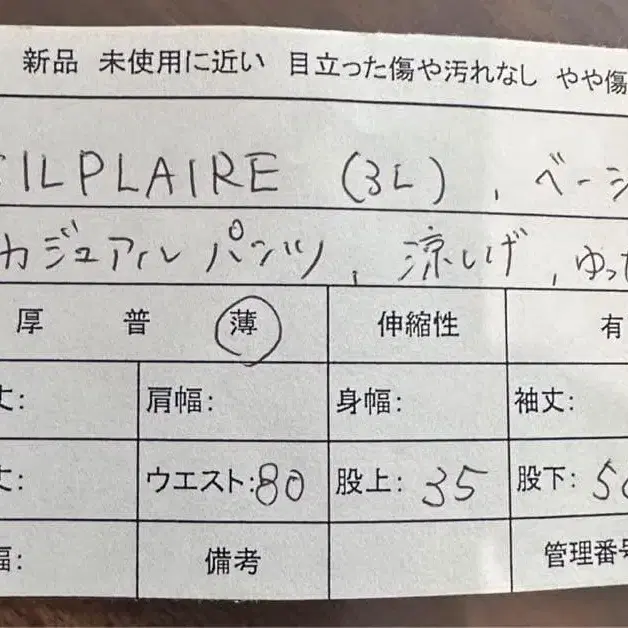 新品 未使用に近い 目立った傷や汚れなし やや傷
ILPLAIRE (3L), ベー
カジュアルパンツ, 涼しげ, ゆっ
厚 普 薄 伸縮性 有
丈: 肩幅: 身幅: 袖丈:
丈: ウエスト:80 股上: 35 股下: 5
幅: 備考 管理番号